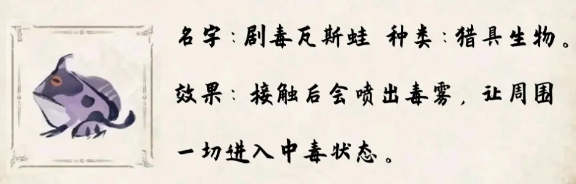 名字:剧毒瓦斯蛙 种类:猎具生物。
效果:接触后会喷出毒雾,让周围
一切进入中毒状态。